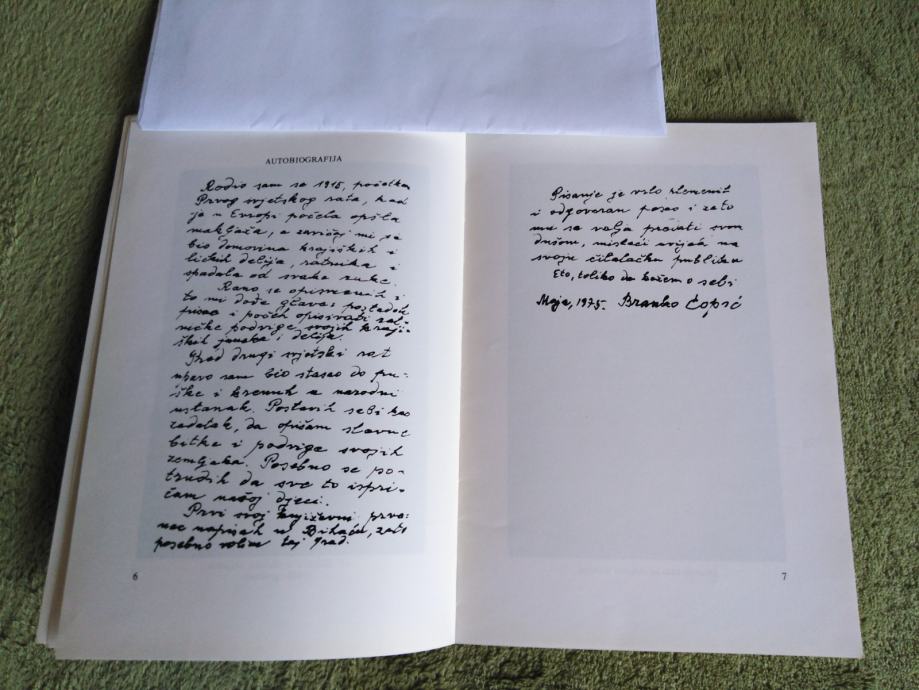 AUTOBIOGRAFIJA
Rodio sam se 1915, početkom
Prvog svjetskog rata, kad
je u Evropi počela opšta
makljaža, a zavičaj mi je
bio domovina krajiških i
ličkih delija, ratnika i
spadala od svake ruke.
Rano se opismenih i
to mi dođe glave: postadoh
pisac i počeh opisivati
podvige svojih kraji-
ških junaka i delija.
Pred drugi svjetski rat
upravo sam bio stasao do pu-
ške i krenuh u narodni
ustanak. Postavih sebi kao
zadatak, da opišem slavne
bitke i podvige svojih
zemljaka. Posebno se po-
trudih da sve to ispri-
čam našoj djeci.
Prvi svoj književni prve-
nac napisah u Bihaću, zato
posebno volim taj grad.
6
Pisanje je vrlo plemenit
i odgovoran posao i zato
mu se valja predati svom
dušom, misleći uvijek na
svoju čitalačku publiku
Eto, toliko da kažem o sebi
Maja, 1975. Branko Ćopić
7